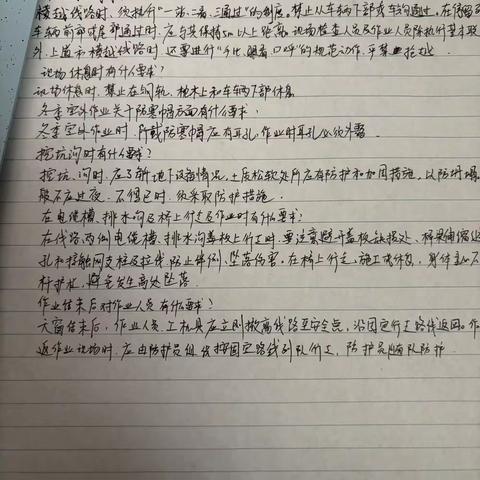 横越线路时，须执行"一站、二看、三通过"的制度。禁止从车辆下部或车钩通过。在停留
车辆前部或尾部通过时，应与其保持5m以上距离。现场检查人员及作业人员除执行
外，上道、横越线路时还要进行"手比、眼看、口呼"的规范动作，严禁抢越
现场休息时有什么要求？
现场休息时，禁止在钢轨、枕木上和车辆下部休息
冬季室外作业关于防寒帽方面有什么要求？
冬季室外作业时，所戴防寒帽应有耳孔，作业时耳孔必须外露。
挖坑沟时有什么要求？
挖坑、沟时，应了解地下设施情况，土质松软处所应有防护和加固措施，以防坍塌
般不应过夜，不得已时，须采取防护措施。
在电缆槽、排水沟及桥上行走及作业时有什么要求？
在线路两侧电缆槽、排水沟盖板上行走时，要注意避开盖板缺损处、桥梁伸缩
孔和接触网支柱及拉线，防止绊倒、坠落伤害。在桥上行走、施工或休息，身体
杆护栏，避免发生高处坠落
作业结束后对作业人员有什么要求？
结束后，作业人员、工机具应立刻撤离线路至安全点，沿固定行走路线返回。作
返作业现场时，应由防护员组织按固定路线列队行走，防护员随队防护